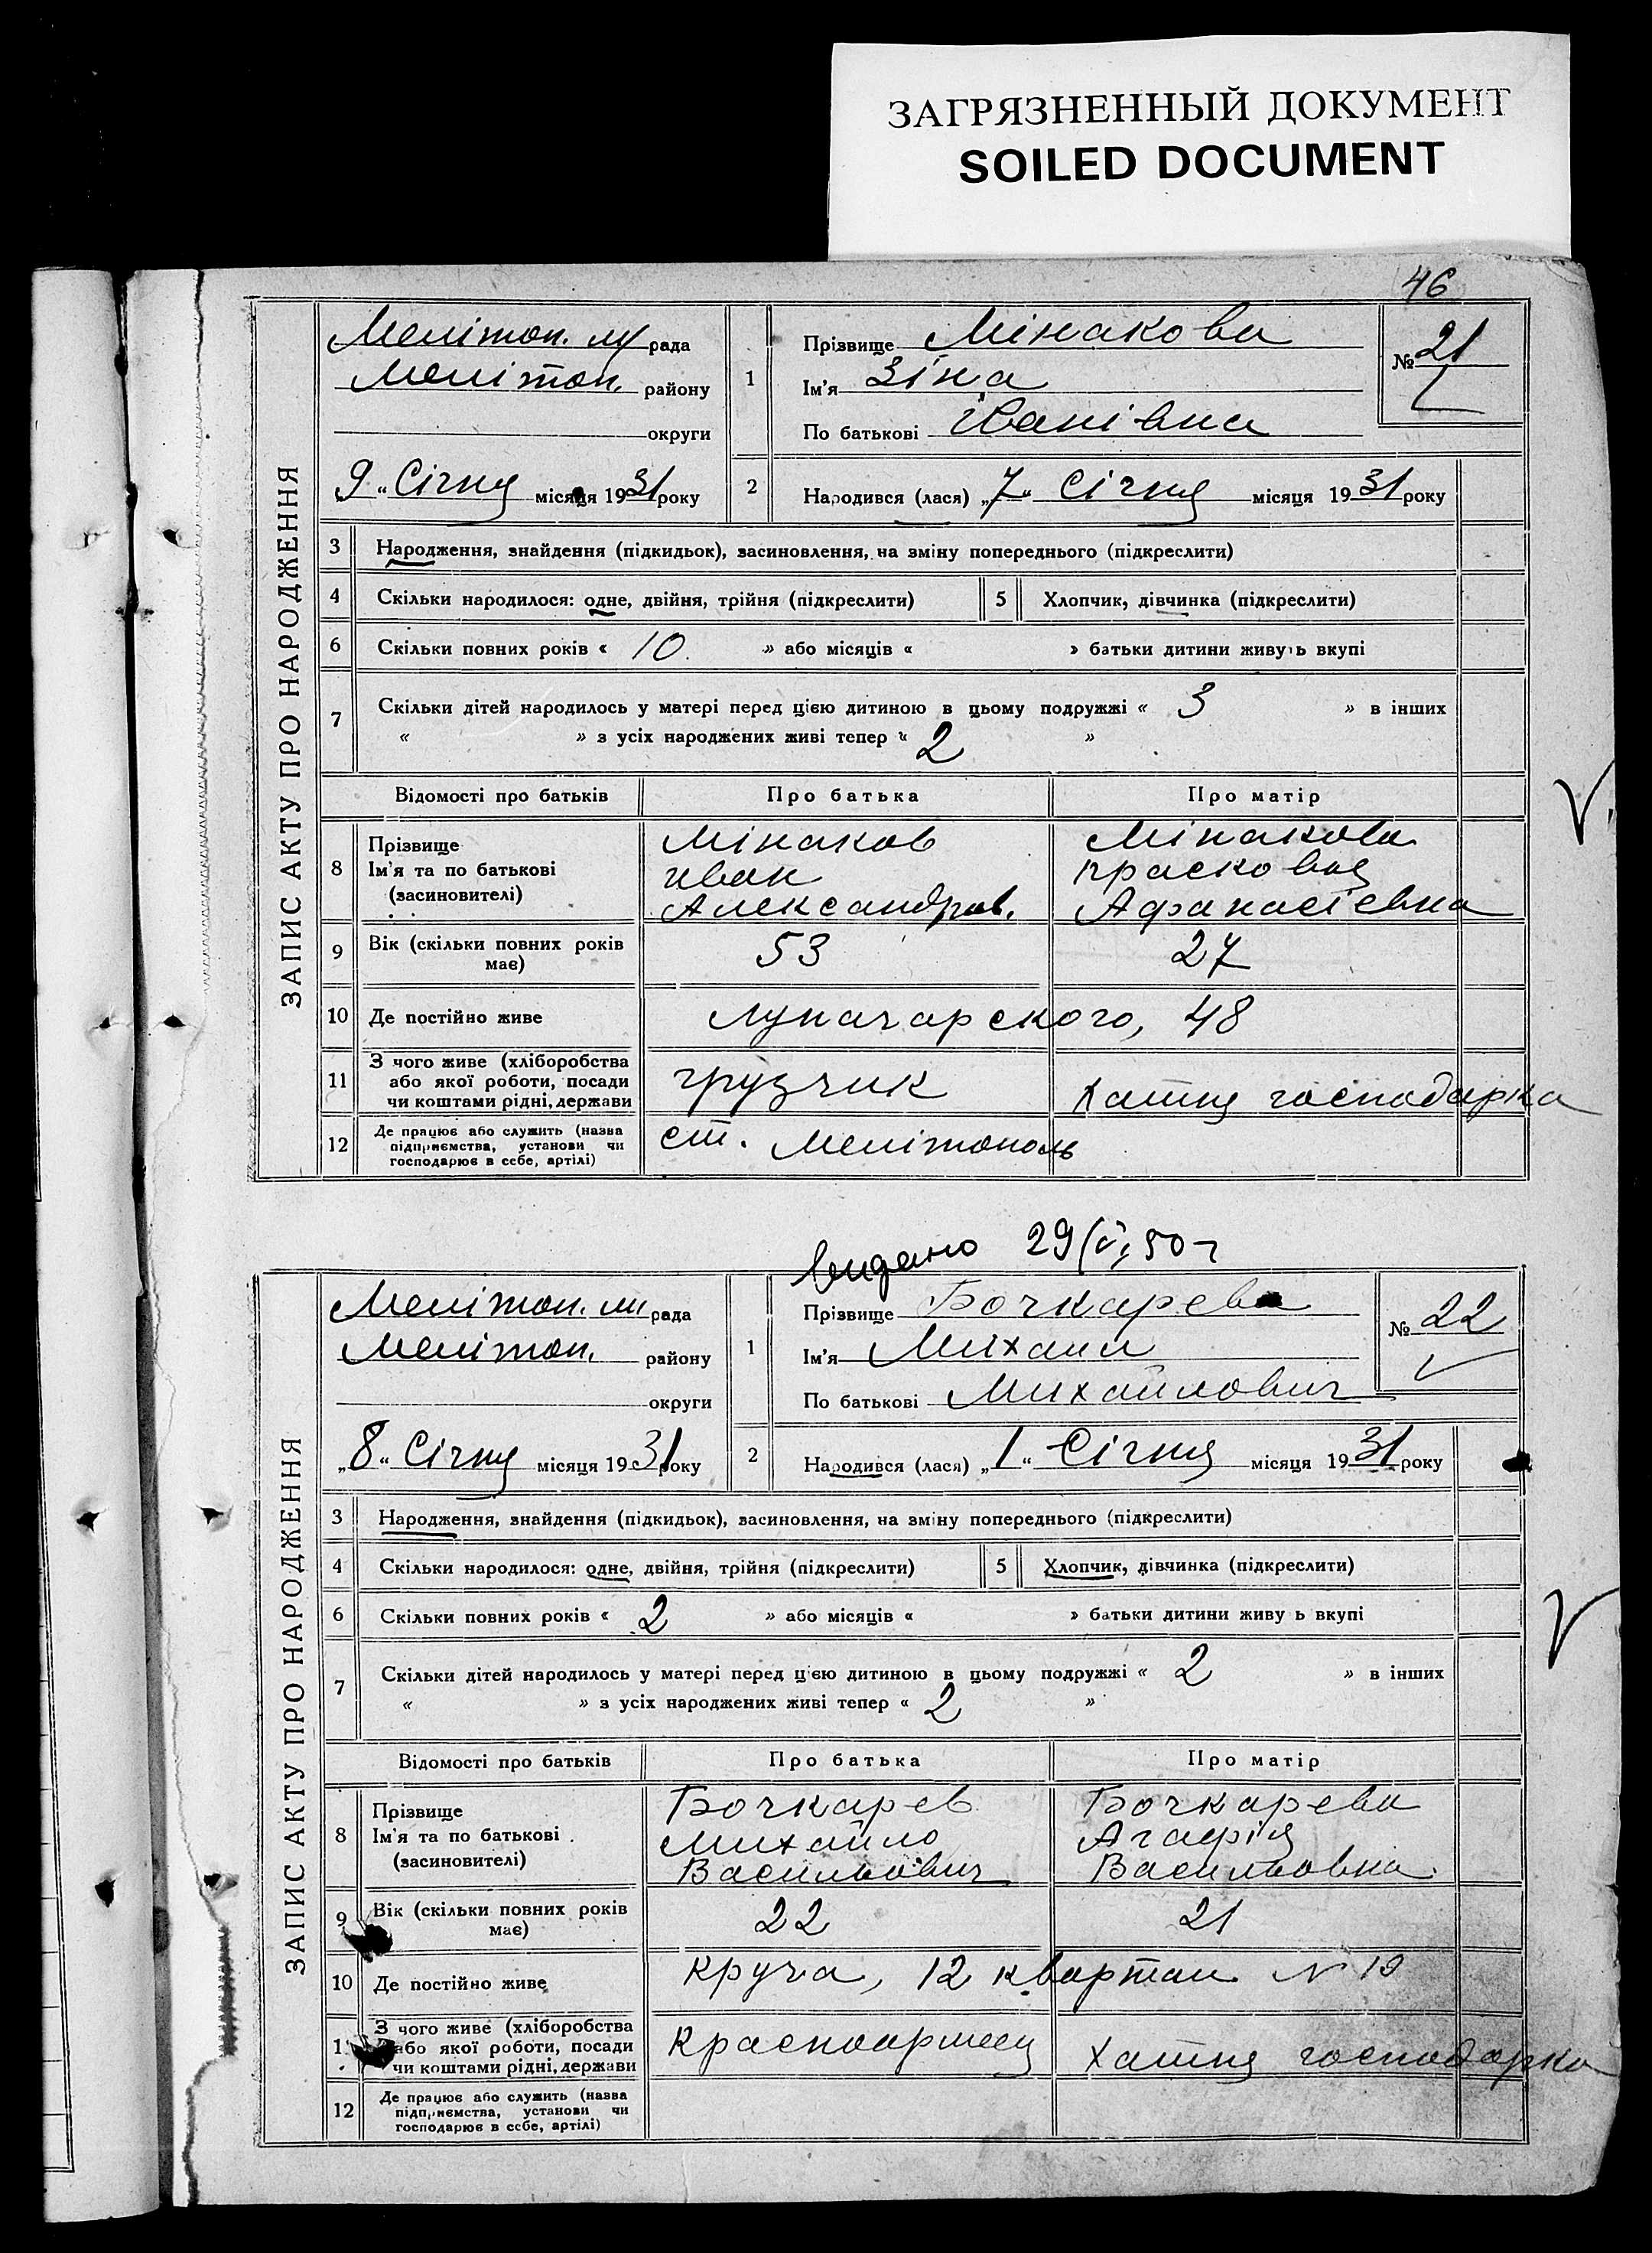 ЗАГРЯЗНЕННЫЙ ДОКУМЕНТ
SOILED DOCUMENT
46
ЗАПИС АКТУ ПРО НАРОДЖЕННЯ
Мелітоп. м/рада
Мелітоп. району
округи
„9“ Січня місяця 1931 року
1
Прізвище Мінакова
Ім'я Зіна
По батькові Іванівна
№ 21
2 Народився (лася) „7“ Січня місяця 1931 року
3 Народження, знайдення (підкидьок), засиновлення, на зміну попереднього (підкреслити)
4 Скільки народилося: одне, двійня, трійня (підкреслити) 5 Хлопчик, дівчинка (підкреслити)
6 Скільки повних років « 10 » або місяців « » батьки дитини живуть вкупі
7 Скільки дітей народилось у матері перед цією дитиною в цьому подружжі « 3 » в інших
« » з усіх народжених живі тепер « 2 »
Відомості про батьків Про батька Про матір
8 Прізвище
Ім'я та по батькові
(засиновителі)
Мінаков
Иван
Александров.
Мінакова
Прасковья
Афанасіевна
9 Вік (скільки повних років
має) 53 27
10 Де постійно живе Луначарского, 48
11 З чого живе (хліборобства
або якої роботи, посади
чи коштами рідні, держави
грузчик Хатня господарка
12 Де працює або служить (назва
підприємства, установи чи
господарює в себе, артілі)
ст. Мелітополь
видано 29 50 г
ЗАПИС АКТУ ПРО НАРОДЖЕННЯ
Мелітоп. м рада
Мелітоп. району
округи
„8“ Січня місяця 1931 року
1
Прізвище Бочкарев
Ім'я Михаил
По батькові Михайлович
№ 22
2 Народився (лася) „1“ Січня місяця 1931 року
3 Народження, знайдення (підкидьок), засиновлення, на зміну попереднього (підкреслити)
4 Скільки народилося: одне, двійня, трійня (підкреслити) 5 Хлопчик, дівчинка (підкреслити)
6 Скільки повних років « 2 » або місяців « » батьки дитини живу ь вкупі
7 Скільки дітей народилось у матері перед цією дитиною в цьому подружжі « 2 » в інших
« » з усіх народжених живі тепер « 2 »
Відомості про батьків Про батька Про матір
8 Прізвище
Ім'я та по батькові
(засиновителі)
Бочкарев
Михайло
Васильович
Бочкарева
Агафія
Васильовна
9 Вік (скільки повних років
має) 22 21
10 Де постійно живе Круча, 12 квартал N 19
11 З чого живе (хліборобства
або якої роботи, посади
чи коштами рідні, держави
Красноармеец Хатня господарка
12 Де працює або служить (назва
підприємства, установи чи
господарює в себе, артілі)